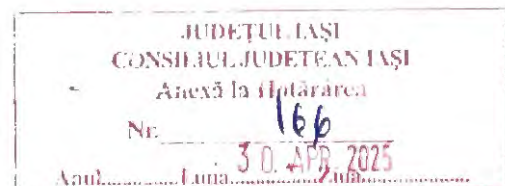 JUDEŢUL IAŞI
CONSILIUL JUDETEAN IAŞI
Anexă la Hotărârea
Nr. 166
30. APR. 2025
Anul............Luna............Ziua............